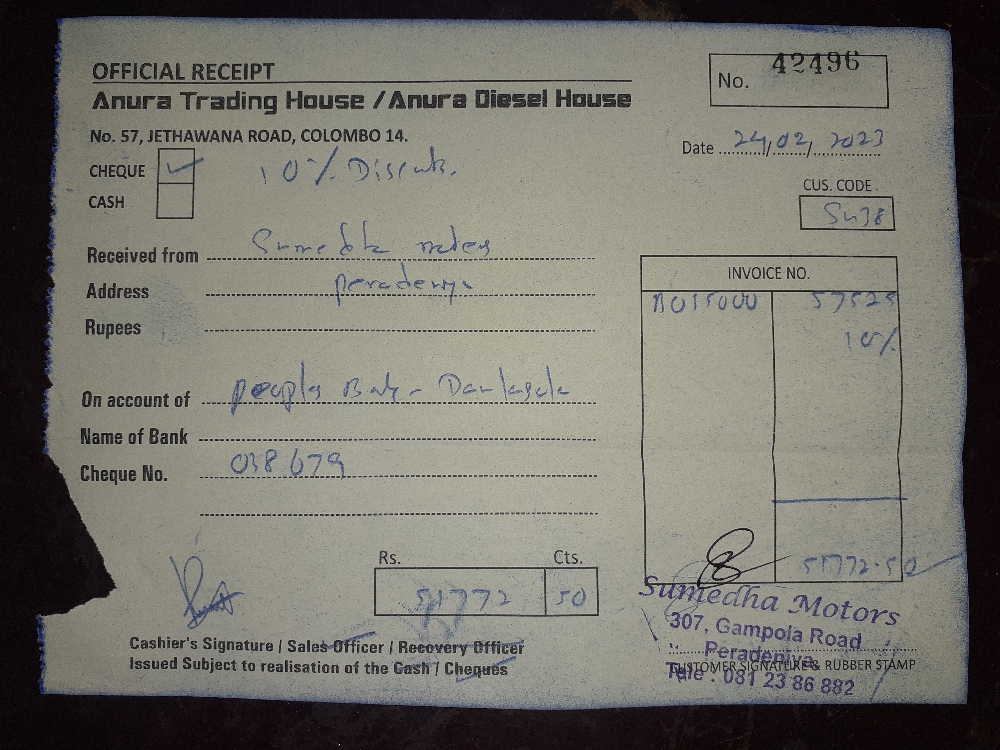 OFFICIAL RECEIPT
No. 42496
Anura Trading House / Anura Diesel House
No. 57, JETHAWANA ROAD, COLOMBO 14.
Date 24/02/2023
CHEQUE ✓ 10%
CASH
CUS. CODE
Su38
Received from
Address peradeniya
Rupees
INVOICE NO.
57525
10%
On account of peoples Bank -
Name of Bank
Cheque No. 038679
Rs. Cts.
51772 50
51772.50
Cashier's Signature / Sales Officer / Recovery Officer
Issued Subject to realisation of the Cash / Cheques
Sumedha Motors
307, Gampola Road
Peradeniya.
CUSTOMER SIGNATURE & RUBBER STAMP
Tele : 081 23 86 882